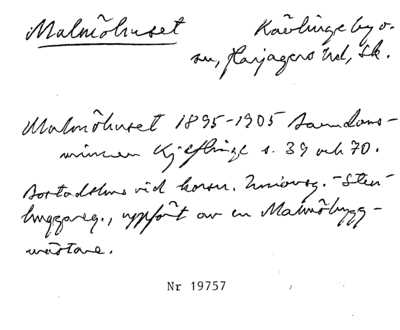 Malmöhuset Kävlinge by o.
sn, Harjagers hd, Sk.
Malmöhuset 1895-1905 Barndoms-
minnen Kjeflinge s. 39 och 70.
Bostadshus vid korsn. Unionsg.-Sten-
huggareg., uppfört av en Malmöbygg-
mästare.
Nr 19757